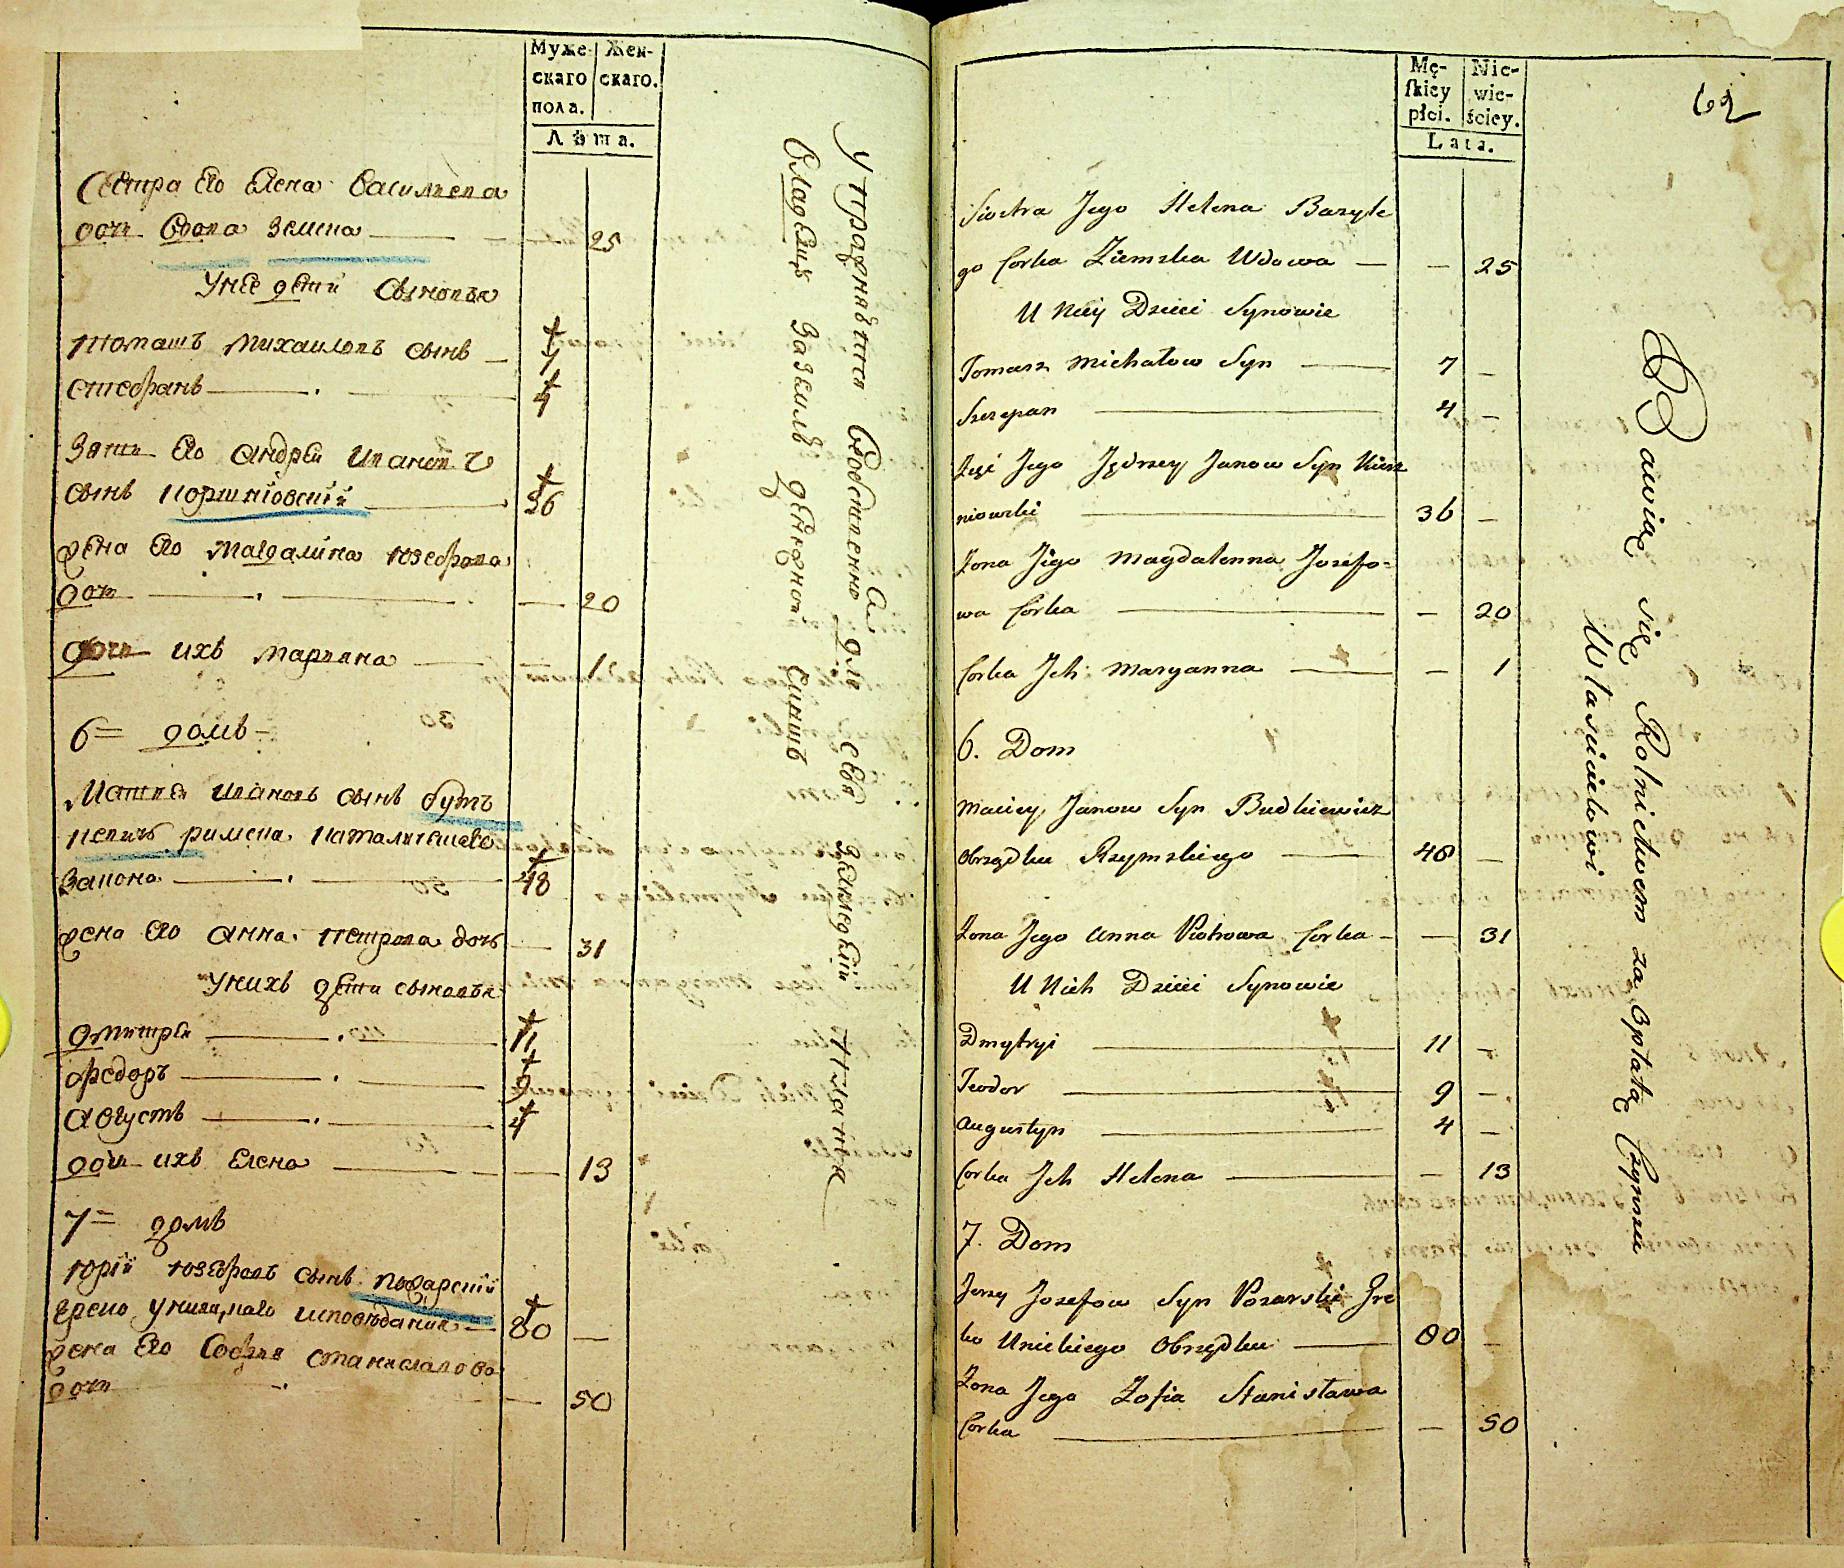 Муже-
скаго
пола.
Жен-
скаго.
Лѣта.
Сестра Его Елена Василіева
дочь Вдова Земска 25
У нее дети Сыновья
Томашъ Михаиловъ сынъ 7
Стефанъ 4
Зять Его Андрей Ивановъ
сынъ 36
жена Его Магдалина Юзефова
дочь 20
дочь ихъ Марiяна 1
6 = домъ
Матвей Ивановъ сынъ Буть
кевичъ римска Католическаго
Закона 48
жена Его Анна Петрова дочь 31
У нихъ дети сыновья
Дмитрей 11
Федоръ 9
Августъ 4
дочь ихъ Елена 13
7 = домъ
Юрiй Юзефовъ сынъ Пожарскiй
Греко Унитскаго исповѣданiя 80
жена Его Софiя Станиславова
дочь 50
Упражняются собственно для себя земледѣлiем
владелцу За землѣ денежной Чиншъ
Mę-
skiey
płci.
Nie-
wie-
ściey.
Lata.
62
Siostra Jego Helena Bazyle
go Corka Ziemska Wdowa — 25
U Niey Dzieci Synowie
Tomasz Michałow Syn 7 –
Szczepan 4 –
Zięć Jego Jędrzey Janow Syn Kurz
niowski 36 –
Żona Jego Magdalenna Jozefo=
wa Corka — 20
Corka Jch Maryanna — 1
6. Dom
Maciey Janow Syn Budkiewicz
Obrządku Rzymskiego 48 –
Żona Jego Anna Piotrowa Corka — 31
U Nich Dzieci Synowie
Dmytryi 11 –
Teodor 9 –
Augustyn 4 –
Corka Jch Helena — 13
7. Dom
Jerzy Jozefow Syn Pozarski Gre
ko Unickiego Obrządku 80 –
Żona Jego Zofia Stanisława
Corka — 50
Bawią się Rolnictwem za Opłatą Czynszu
Właścicielowi